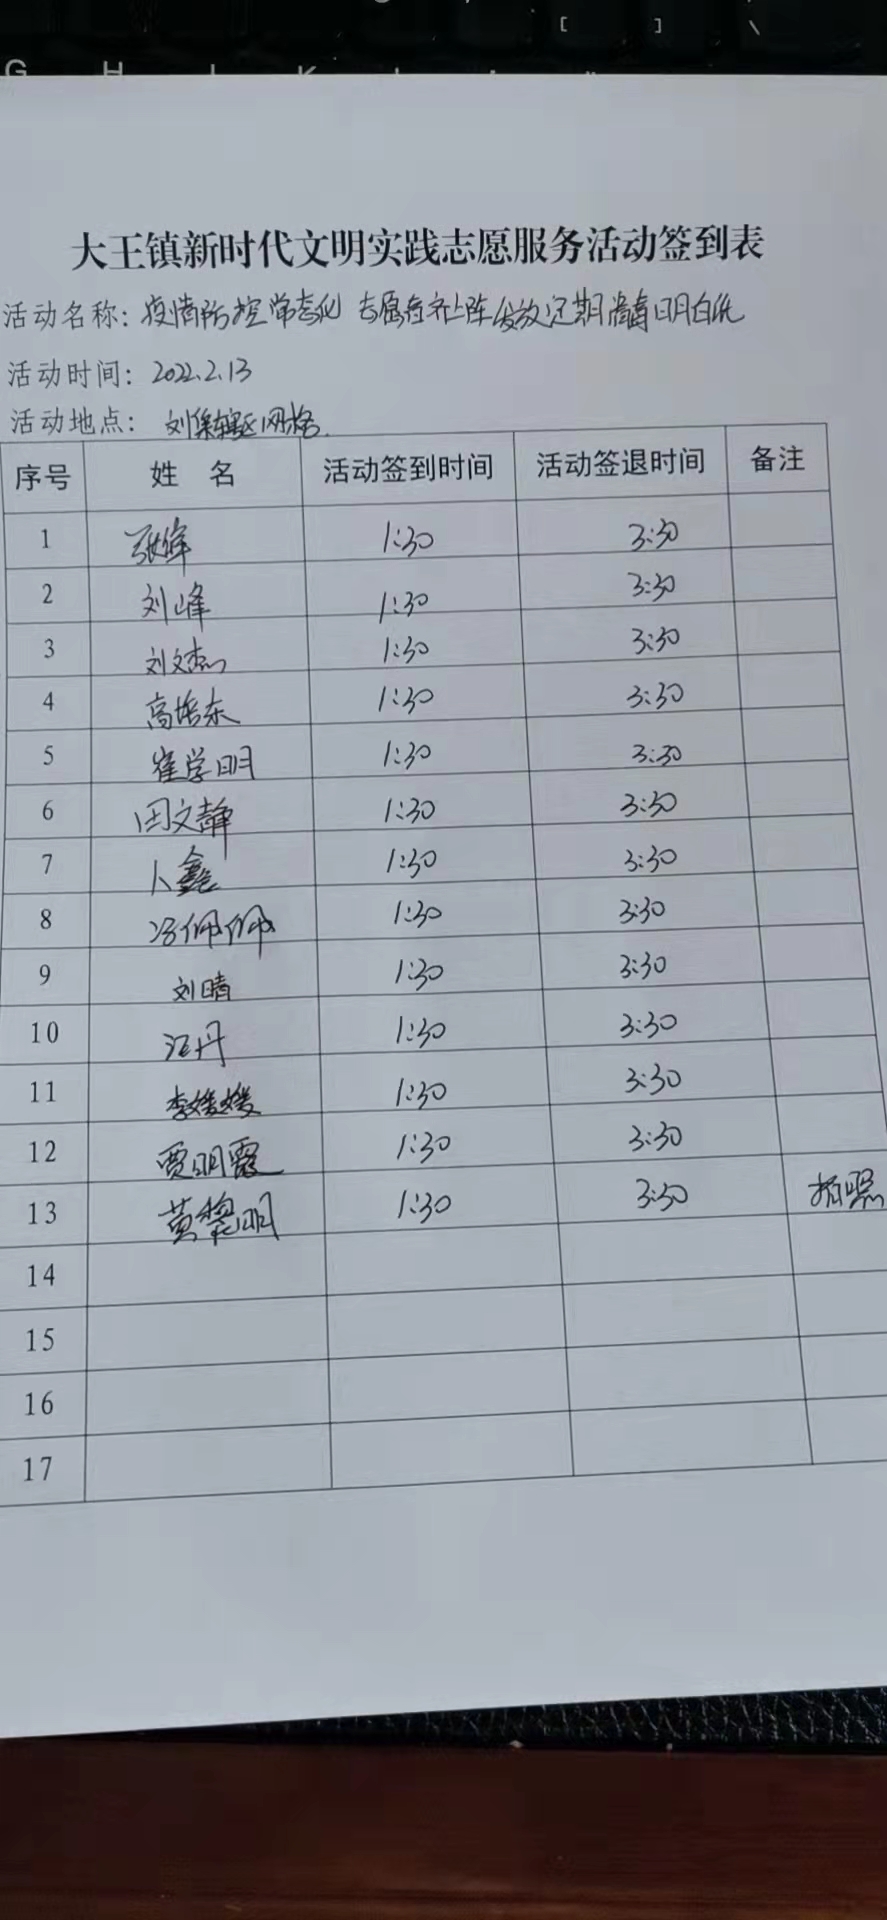 [ ] \
G H J K L
大王镇新时代文明实践志愿服务活动签到表
活动名称：疫情防控常态化 志愿者齐上阵 发放定期消毒明白纸
活动时间：2022.2.13
活动地点：刘集辖区网格.
序号 姓 名 活动签到时间 活动签退时间 备注
1 张峰 1:30 3:30
2 刘峰 1:30 3:30
3 刘文杰 1:30 3:30
4 高培东 1:30 3:30
5 崔学明 1:30 3:30
6 田文静 1:30 3:30
7 卜鑫 1:30 3:30
8 冯佩佩 1:30 3:30
9 刘晴 1:30 3:30
10 江丹 1:30 3:30
11 李媛媛 1:30 3:30
12 贾明霞 1:30 3:30
13 黄黎明 1:30 3:30 拍照
14
15
16
17